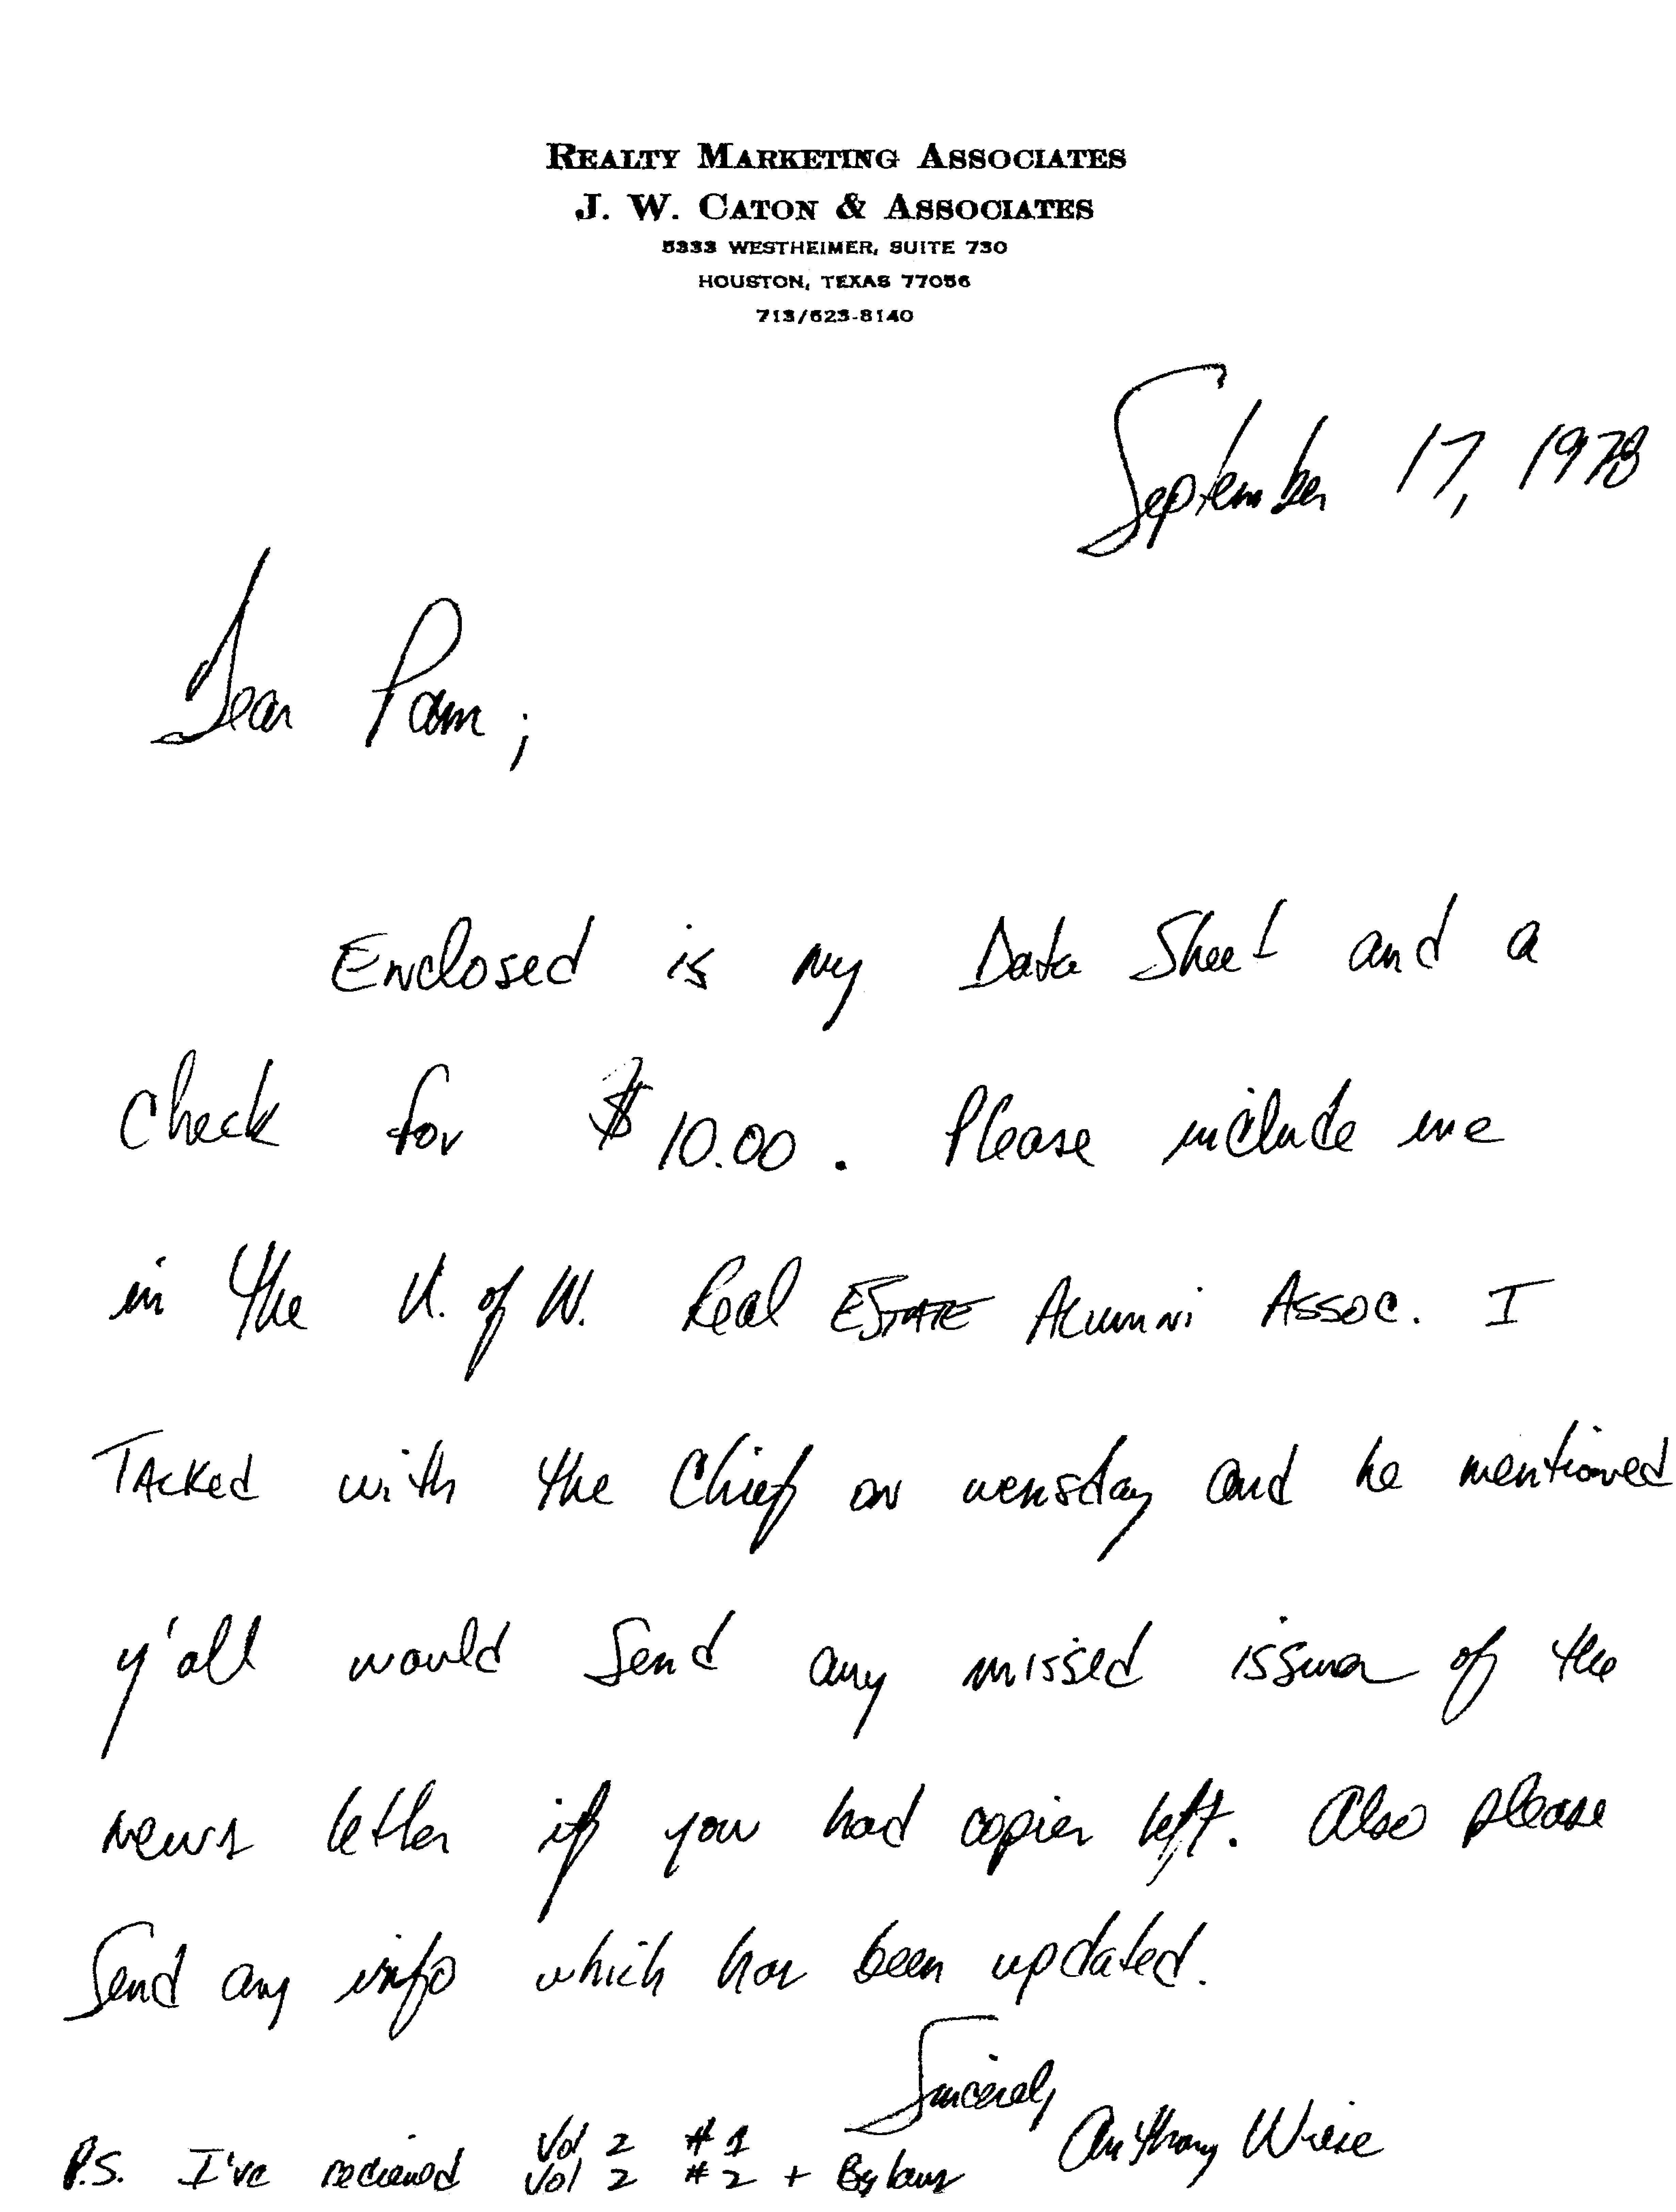 REALTY MARKETING ASSOCIATES
J. W. CATON & ASSOCIATES
5333 WESTHEIMER, SUITE 730
HOUSTON, TEXAS 77056
713/623-8140
September 17, 1978
Dear Pam;
Enclosed is my Data Sheet and a
check for $10.00. Please include me
in the U. of W. Real ESTATE Alumni Assoc. I
TAcked with the Chief on wensday and he mentioned
y'all would Send any missed issues of the
news letter if you had copies left. Also please
Send any info which has been updated.
Sincerely
Anthony Wiese
P.S. I've recieved Vol 2 #1
Vol 2 #2 + Bylaws